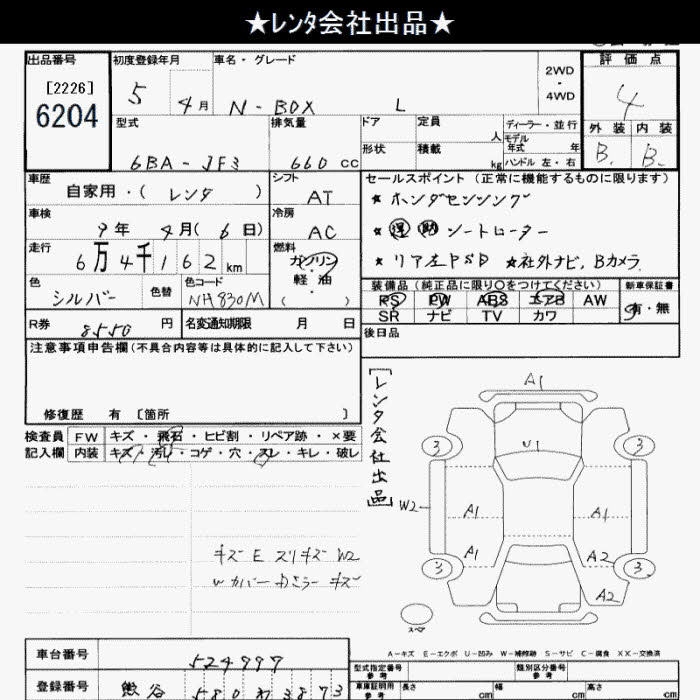 ★レンタ会社出品★
出品番号
[2226]
6204
初度登録年月
5 4月
車名・グレード
N-BOX L
2WD
・
4WD
評価点
4
外装 内装
B. B.
型式
6BA-JF3
排気量
660 cc
ドア
形状
定員
人
積載
kg
ディーラー・並行
モデル
年式 年
ハンドル 左・右
車歴
自家用・( レンタ )
シフト
AT
車検
9年 4月( 6日)
冷房
AC
走行
6万4千162km
燃料
ガソリン
・
軽油
( )
色
シルバー
色替
色コード
NH830M
R券
8550 円
名変通知期限 月 日
セールスポイント (正常に機能するものに限ります)
★ ホンダセンシング
★ 運 助 シートヒーター
★ リア左PSD ★社外ナビ, Bカメラ
装備品(純正品に限り○をつけてください)
PS PW ABS エアB AW
SR ナビ TV カワ
新車保証書
有・無
後日品
注意事項申告欄(不具合内容等は具体的に記入して下さい)
修復歴 有 〔箇所 〕
検査員
記入欄
FW キズ・飛石・ヒビ割・リペア跡・×要
内装 キズ・汚レ・コゲ・穴・スレ・キレ・破レ
キズ E スリキズ W2
W カバー キズ
[レンタ会社出品]
A1
U1
3 3
W2
A1 A1
A1 A2
3 3
A2
スペア
A-キズ E-エクボ U-凹み W-補修跡 S-サビ C-腐食 XX-交換済
車台番号
524997
登録番号
熊谷 580 わ 3873
型式指定番号
参考
類別区分番号
参考
車庫証明用
参考
長さ cm
幅 cm
高さ cm